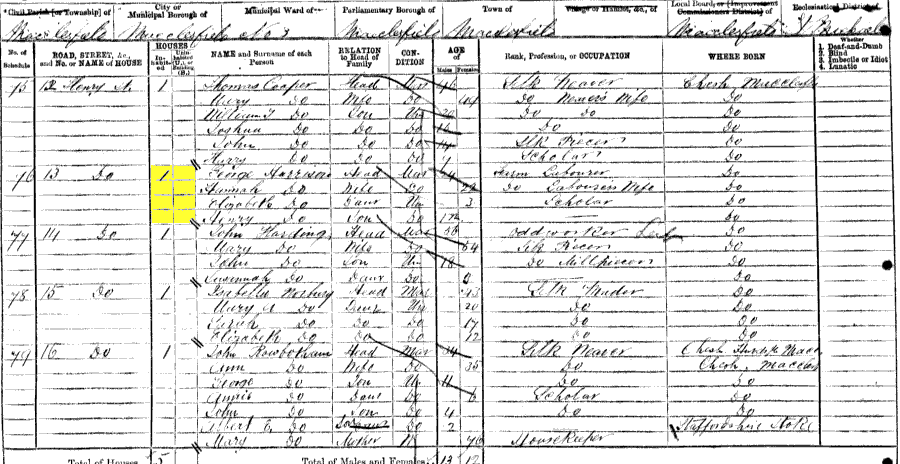 Civil Parish [or Township] of
City or Municipal Borough of
Municipal Ward of
Parliamentary Borough of
Town of
Village or Hamlet, &c., of
Local Board, or [Improvement Commissioners District] of
Ecclesiastical District of
Macclesfield Macclesfield No 3 Macclesfield Macclesfield Macclesfield St Michaels
No. of Schedule
ROAD, STREET, &c., and No. or NAME of HOUSE
HOUSES
In-habited
Uninhabited (U.), or Building (B.)
NAME and Surname of each Person
RELATION to Head of Family
CON-DITION
AGE of
Males Females
Rank, Profession, or OCCUPATION
WHERE BORN
Whether
1. Deaf-and-Dumb
2. Blind
3. Imbecile or Idiot
4. Lunatic
75 12 Henry St 1 Thomas Cooper Head Mar 46 Silk Weaver Chesh Macclesfield
Mary Do Wife Do 44 Do Weavers Wife Do
William Do Son Un Do Do Do
Joshua Do Do Do 16 Do Do
John Do Do Do 14 Silk Piecer Do
Harry Do Do Scholar Do
76 13 Do 1 George Harrison Head Mar 24 Farm Labourer Do
Hannah Do Wife Do 22 Do Labourers Wife Do
Elizabeth Do Daur Un 3 Scholar Do
Henry Do Son Do Do
77 14 Do 1 John Harding Head Mar 56 Odd worker Do
Mary Do Wife Do 54 Silk Piecer Do
John Do Son Un 18 Do Mill piecer Do
Susannah Do Daur Do 9 Do
78 15 Do 1 Isabella Norbury Head 43 Silk Winder Do
Mary A Do Daur Un 20 Do Do
Sarah Do Do Do 17 Do Do
Elizabeth Do Do Do 12 Do Do
79 16 Do 1 John Rowbotham Head Mar 34 Silk Weaver Chesh Macc
Ann Do Wife Do 35 Do Chesh. Maccles
George Do Son Un 11 Do Do
Annie Do Daur Do 6 Scholar Do
John Do Son Do 4 Do Do
Albert E Do Do 2 Staffordshire Stoke
Mary Do Mother W 76 Housekeeper
Total of Houses 5
Total of Males and Females 13 12